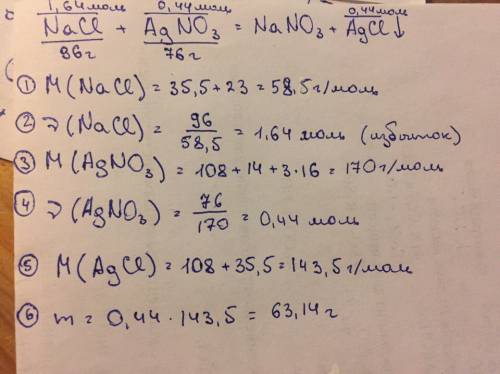 1,64 моль 0,44 моль 0,44 моль
NaCl + AgNO₃ = NaNO₃ + AgCl↓
96г 76г
① M(NaCl) = 35,5+23 = 58,5г/моль
② ν(NaCl) = 96/58,5 = 1,64 моль (избыток)
③ M(AgNO₃) = 108+14+3·16 = 170г/моль
④ ν(AgNO₃) = 76/170 = 0,44 моль
⑤ M(AgCl) = 108+35,5 = 143,5г/моль
⑥ m = 0,44·143,5 = 63,14г